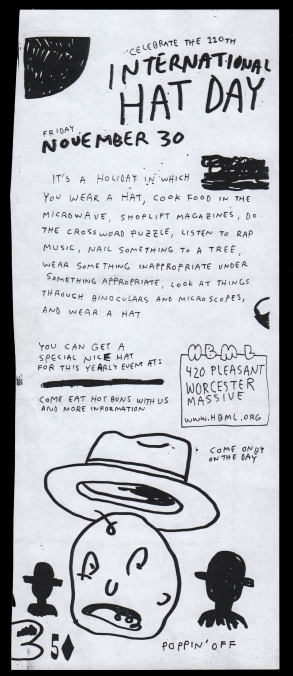 CELEBRATE THE 110TH
INTERNATIONAL
HAT DAY
FRIDAY
NOVEMBER 30
IT'S A HOLIDAY IN WHICH
YOU WEAR A HAT, COOK FOOD IN THE
MICROWAVE, SHOPLIFT MAGAZINES, DO
THE CROSSWORD PUZZLE, LISTEN TO RAP
MUSIC, NAIL SOMETHING TO A TREE,
WEAR SOMETHING INAPPROPRIATE UNDER
SOMETHING APPROPRIATE, LOOK AT THINGS
THROUGH BINOCULARS AND MICROSCOPES,
AND WEAR A HAT
YOU CAN GET A
SPECIAL NICE HAT
FOR THIS YEARLY EVENT AT:
COME EAT HOT BUNS WITH US
AND MORE INFORMATION
HBML
420 PLEASANT
WORCESTER
MASSIVE
WWW.HBML.ORG
COME ON BY
ON THE DAY
3 5♦
POPPIN' OFF